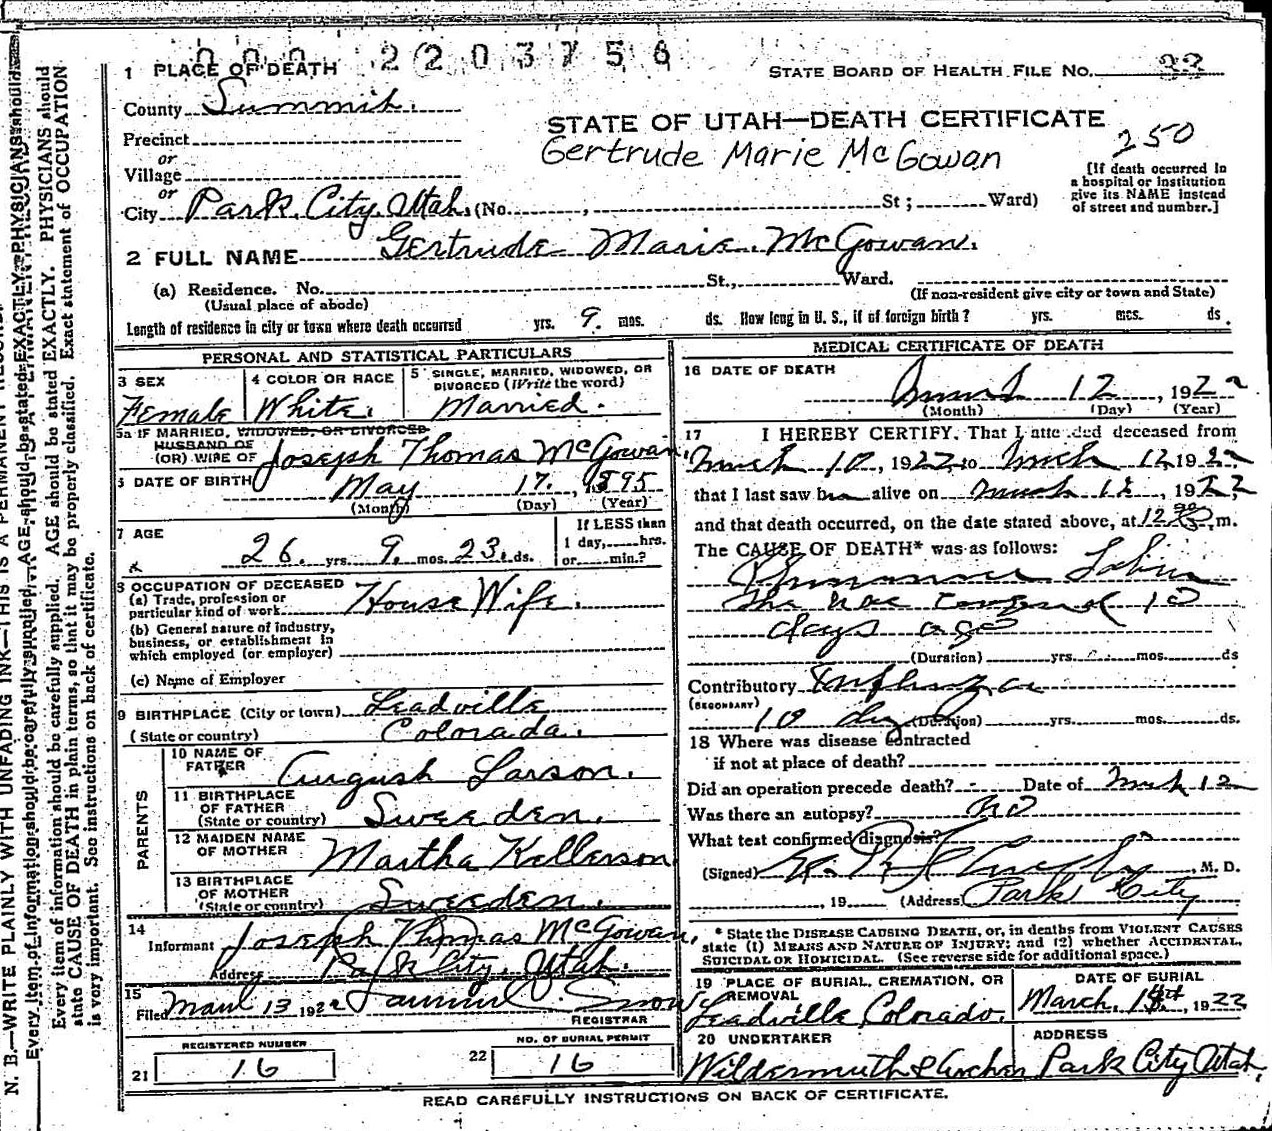 2203756
1 PLACE OF DEATH
STATE BOARD OF HEALTH FILE NO. 33
County Summit.
STATE OF UTAH—DEATH CERTIFICATE
250
Precinct
Gertrude Marie McGowan
or
Village
[If death occurred in
a hospital or institution
give its NAME instead
of street and number.]
or
City Park City, Utah. (No. , St ; Ward)
2 FULL NAME Gertrude Marie McGowan.
(a) Residence. No. St., Ward.
(Usual place of abode)
(If non-resident give city or town and State)
Length of residence in city or town where death occurred yrs. 9. mos. ds. How long in U. S., if of foreign birth ? yrs. mos. ds.
PERSONAL AND STATISTICAL PARTICULARS
3 SEX
Female
4 COLOR OR RACE
White.
5 SINGLE, MARRIED, WIDOWED, OR
DIVORCED (Write the word)
Married.
5a IF MARRIED, WIDOWED, OR DIVORCED
HUSBAND OF
(OR) WIFE OF Joseph Thomas McGowan.
6 DATE OF BIRTH May 17. , 1895
(Month) (Day) (Year)
7 AGE
26. yrs. 9. mos. 23. ds.
If LESS than
1 day, hrs.
or min.?
8 OCCUPATION OF DECEASED
(a) Trade, profession or
particular kind of work House Wife.
(b) General nature of industry,
business, or establishment in
which employed (or employer)
(c) Name of Employer
9 BIRTHPLACE (City or town) Leadville
(State or country) Colorada.
PARENTS
10 NAME OF
FATHER August Larson.
11 BIRTHPLACE
OF FATHER
(State or country) Sweeden.
12 MAIDEN NAME
OF MOTHER Martha Kellerson
13 BIRTHPLACE
OF MOTHER
(State or country) Sweeden.
14
Informant Joseph Thomas McGowan,
Address Park City, Utah.
15
Filed March 13 1922 Snow
REGISTRAR
REGISTERED NUMBER
21 16
NO. OF BURIAL PERMIT
22 16
MEDICAL CERTIFICATE OF DEATH
16 DATE OF DEATH
March 12 , 1922
(Month) (Day) (Year)
17 I HEREBY CERTIFY. That I attended deceased from
March 10, 1922 to March 12 1922
that I last saw her alive on March 12 , 1922
and that death occurred, on the date stated above, at 12 m.
The CAUSE OF DEATH* was as follows:
Pneumonia Lobar
She was 10
days ago
(Duration) yrs. mos. ds
Contributory Influenza
(SECONDARY)
10 days (Duration) yrs. mos. ds.
18 Where was disease contracted
if not at place of death?
Did an operation precede death? Date of March 12
Was there an autopsy? no
What test confirmed diagnosis?
(Signed) , M. D.
, 19 (Address) Park City
* State the DISEASE CAUSING DEATH, or, in deaths from VIOLENT CAUSES
state (1) MEANS AND NATURE OF INJURY; and (2) whether ACCIDENTAL,
SUICIDAL OR HOMICIDAL. (See reverse side for additional space.)
19 PLACE OF BURIAL, CREMATION, OR
REMOVAL
Leadville Colorado.
DATE OF BURIAL
March. 15th, 1922
20 UNDERTAKER
Wildermuth & Archer
ADDRESS
Park City Utah.
READ CAREFULLY INSTRUCTIONS ON BACK OF CERTIFICATE.
N. B.—WRITE PLAINLY WITH UNFADING INK—THIS IS A PERMANENT RECORD.
Every item of information should be carefully supplied. AGE should be stated EXACTLY. PHYSICIANS should
state CAUSE OF DEATH in plain terms, so that it may be properly classified. Exact statement of OCCUPATION
is very important. See instructions on back of certificate.